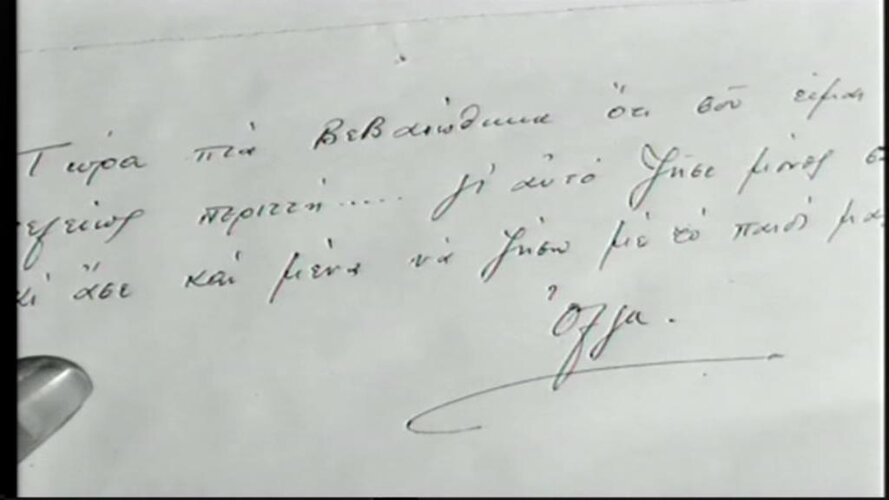 Τώρα πιὰ βεβαιώθηκα ὅτι σοῦ εἶμαι
τελείως περιττή..... γι' αὐτό ζῆσε μόνος
κι ἄσε καί μένα νὰ ζήσω μὲ τὸ παιδί μας
Ὄλγα.